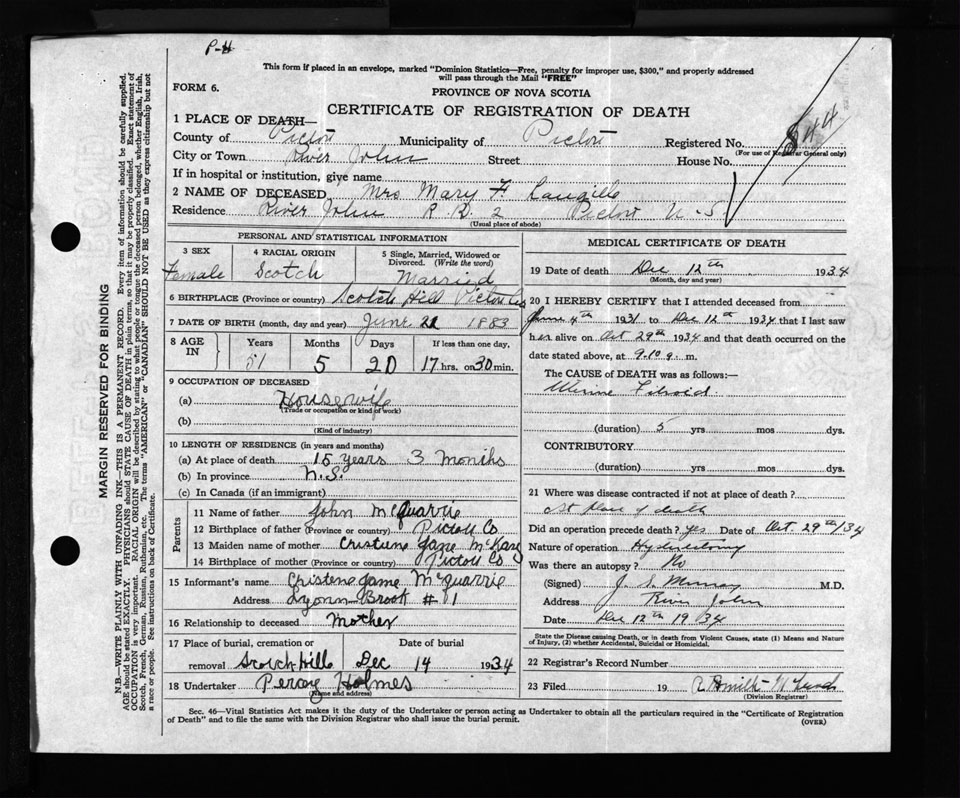 P-H
This form if placed in an envelope, marked "Dominion Statistics—Free, penalty for improper use, $300," and properly addressed
will pass through the Mail "FREE"
FORM 6.
PROVINCE OF NOVA SCOTIA
CERTIFICATE OF REGISTRATION OF DEATH
1 PLACE OF DEATH—
County of Pictou Municipality of Pictou Registered No. 844
(For use of Registrar General only)
City or Town River John Street House No.
If in hospital or institution, give name
2 NAME OF DECEASED Mrs Mary F Langille
Residence River John R.D. 2 Pictou N.S.
(Usual place of abode)
PERSONAL AND STATISTICAL INFORMATION
3 SEX Female
4 RACIAL ORIGIN Scotch
5 Single, Married, Widowed or Divorced. (Write the word) Married
6 BIRTHPLACE (Province or country) Scotch Hill Pictou Co
7 DATE OF BIRTH (month, day and year) June 21 1883
8 AGE IN Years 51 Months 5 Days 20 If less than one day. 17 hrs. or 30 min.
9 OCCUPATION OF DECEASED
(a) Housewife
(Trade or occupation or kind of work)
(b)
(Kind of industry)
10 LENGTH OF RESIDENCE (in years and months)
(a) At place of death 15 years 3 months
(b) In province N.S.
(c) In Canada (if an immigrant)
Parents
11 Name of father John McQuarrie
12 Birthplace of father (Province or country) Pictou Co
13 Maiden name of mother Cristene Jane
14 Birthplace of mother (Province or country) Pictou Co
15 Informant's name Cristene Jane McQuarrie
Address Lyons Brook # 1
16 Relationship to deceased Mother
17 Place of burial, cremation or removal Scotch Hill Date of burial Dec 14 1934
18 Undertaker Percy Holmes
(Name and address)
MEDICAL CERTIFICATE OF DEATH
19 Date of death Dec 12th 1934
(Month, day and year)
20 I HEREBY CERTIFY that I attended deceased from
June 4th 1931 to Dec 12th 1934 that I last saw
her alive on Oct 29th 1934 and that death occurred on the
date stated above, at 9.10 a. m.
The CAUSE OF DEATH was as follows:—
Uterine Fibroid
(duration) 5 yrs mos dys.
CONTRIBUTORY
(duration) yrs mos dys.
21 Where was disease contracted if not at place of death?
At place of death
Did an operation precede death? yes Date of Oct. 29th/34
Nature of operation Hysterectomy
Was there an autopsy? No
(Signed) J. S. Murray M.D.
Address River John
Date Dec 12th 1934
State the Disease causing Death, or in death from Violent Causes, state (1) Means and Nature
of Injury, (2) whether Accidental, Suicidal or Homicidal.
22 Registrar's Record Number
23 Filed 19
(Division Registrar)
Sec. 46—Vital Statistics Act makes it the duty of the Undertaker or person acting as Undertaker to obtain all the particulars required in the "Certificate of Registration
of Death" and to file the same with the Division Registrar who shall issue the burial permit.
(OVER)
MARGIN RESERVED FOR BINDING
N.B.—WRITE PLAINLY WITH UNFADING INK—THIS IS A PERMANENT RECORD. Every item of information should be carefully supplied.
AGE should be stated EXACTLY. PHYSICIANS should STATE CAUSE OF DEATH in plain terms, so that it may be properly classified. Exact statement of
OCCUPATION is very important. RACIAL ORIGIN will be described by stating to what people or tongue the deceased person belonged, whether English, Irish,
Scotch, French, German, Russian, Ruthenian, etc. The terms "AMERICAN" or "CANADIAN" SHOULD NOT BE USED as they express citizenship but not
a race or people. See instructions on back of Certificate.